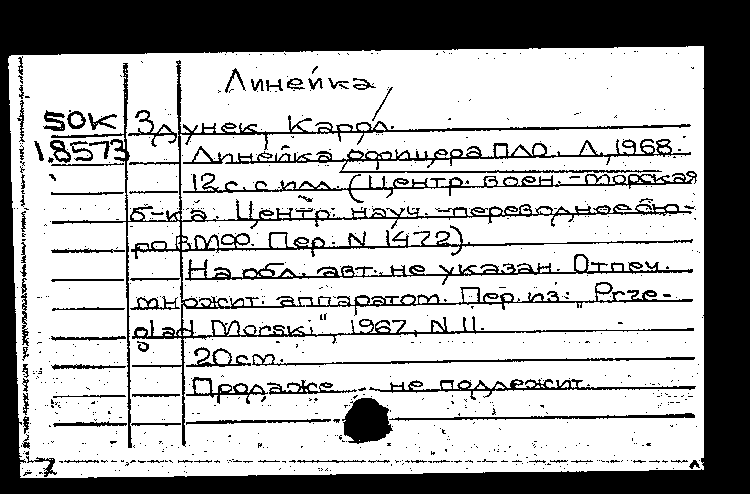 Линейка
50К Здунек, Карол.
1.8573 Линейка офицера ПЛО. Л., 1968.
12 с. с илл. (Центр. воен.-морская
б-ка. Центр. науч.-переводное бю-
ро ВМФ. Пер. N 1472).
На обл. авт. не указан. Отпеч.
множит. аппаратом. Пер. из: „Prze-
glad Morski", 1967, N 11.
20 см.
Продаже не подлежит.